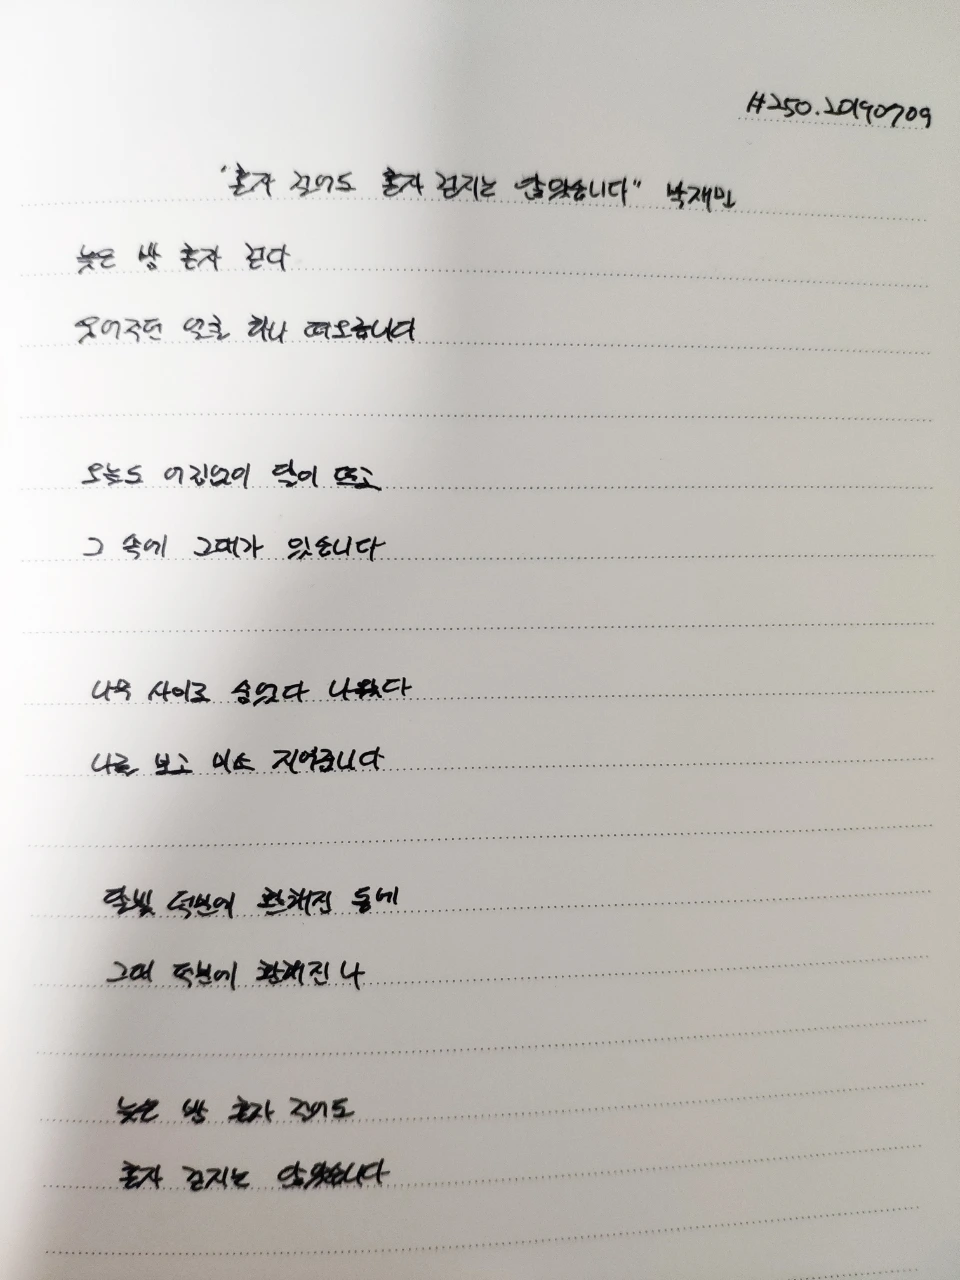 #250.20190709
"혼자 걸어도 혼자 걷지는 않았습니다" 박재민
늦은 밤 혼자 걷다
웃어주던 얼굴 하나 떠오릅니다
오늘도 어김없이 달이 뜨고
그 속에 그대가 있습니다
나무 사이로 숨었다 나왔다
나를 보고 미소 지어줍니다
달빛 덕분에 환해진 동네
그대 덕분에 환해진 나
늦은 밤 혼자 걸어도
혼자 걷지는 않았습니다